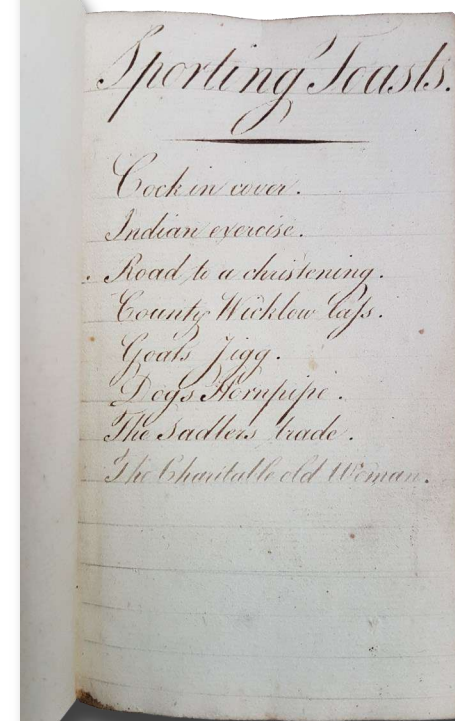 Sporting Toasts.
Cock in cover.
Indian exercise.
Road to a christening.
County Wicklow lass.
Goats Jigg.
Dogs Hornpipe.
The Sadlers trade.
The Charitable old Woman.